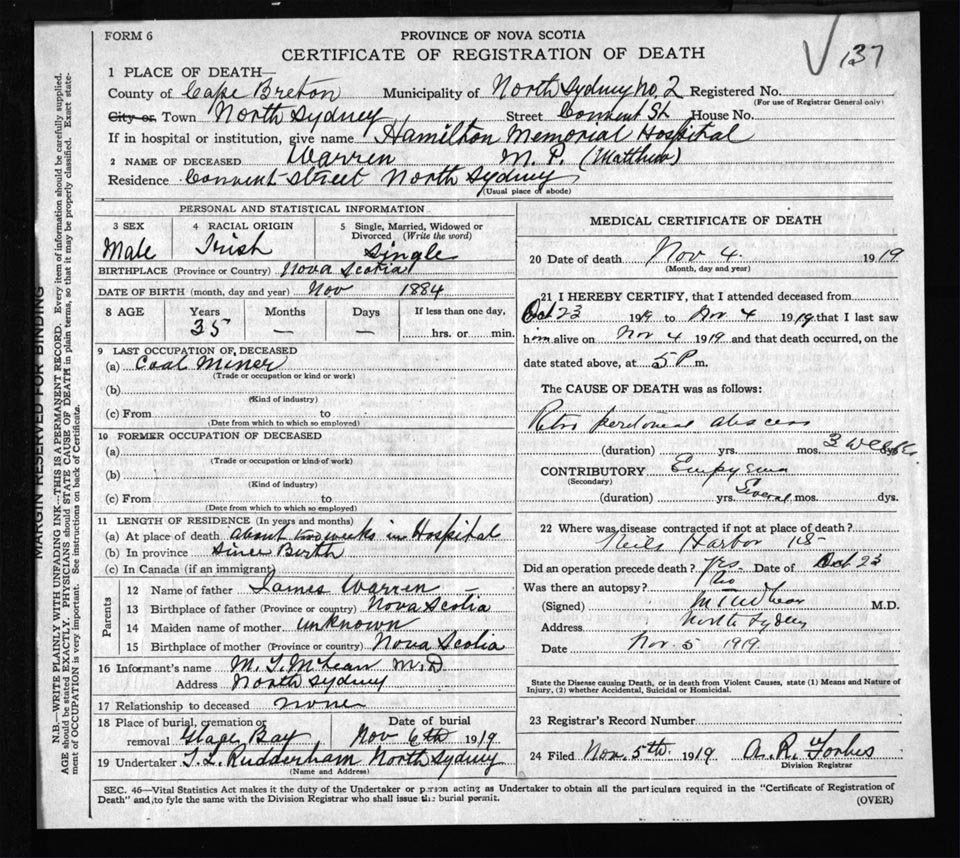 FORM 6
PROVINCE OF NOVA SCOTIA
CERTIFICATE OF REGISTRATION OF DEATH
137
1 PLACE OF DEATH—
County of Cape Breton Municipality of North Sydney No. 2 Registered No.
(For use of Registrar General only)
City or Town North Sydney Street Convent St. House No.
If in hospital or institution, give name Hamilton Memorial Hospital
2 NAME OF DECEASED Warren M. P. (Matthew)
Residence Convent Street North Sydney
(Usual place of abode)
PERSONAL AND STATISTICAL INFORMATION
3 SEX Male
4 RACIAL ORIGIN Irish
5 Single, Married, Widowed or Divorced (Write the word) Single
BIRTHPLACE (Province or Country) Nova Scotia
DATE OF BIRTH (month, day and year) Nov 1884
8 AGE Years Months Days If less than one day,
35 — — hrs. or min.
9 LAST OCCUPATION OF DECEASED
(a) Coal Miner
(Trade or occupation or kind or work)
(b)
(Kind of industry)
(c) From to
(Date from which to which so employed)
10 FORMER OCCUPATION OF DECEASED
(a)
(Trade or occupation or kind of work)
(b)
(Kind of industry)
(c) From to
(Date from which to which so employed)
11 LENGTH OF RESIDENCE (In years and months)
(a) At place of death about two weeks in Hospital
(b) In province Since Birth
(c) In Canada (if an immigrant)
Parents
12 Name of father James Warren
13 Birthplace of father (Province or country) Nova Scotia
14 Maiden name of mother unknown
15 Birthplace of mother (Province or country) Nova Scotia
16 Informant's name M. T. McLean M.D.
Address North Sydney
17 Relationship to deceased none
18 Place of burial, cremation or removal Glace Bay
Date of burial Nov 6th 1919
19 Undertaker T. L. Rudderham North Sydney
(Name and Address)
MEDICAL CERTIFICATE OF DEATH
20 Date of death Nov 4. 1919
(Month, day and year)
21 I HEREBY CERTIFY, that I attended deceased from
Oct 23 1919 to Nov 4 1919 that I last saw
him alive on Nov 4 1919 and that death occurred, on the
date stated above, at 5 P m.
The CAUSE OF DEATH was as follows:
Retro peritoneal abscess
(duration) yrs. mos. 3 weeks dys.
CONTRIBUTORY Empyema
(Secondary)
(duration) yrs. Several mos. dys.
22 Where was disease contracted if not at place of death?
Neils Harbor
Did an operation precede death? yes. Date of Oct 23
Was there an autopsy? No
(Signed) M T McLean M.D.
Address North Sydney
Date Nov. 5 1919.
State the Disease causing Death, or in death from Violent Causes, state (1) Means and Nature of
Injury, (2) whether Accidental, Suicidal or Homicidal.
23 Registrar's Record Number
24 Filed Nov. 5th. 1919 A. R. Forbes
Division Registrar
SEC. 46—Vital Statistics Act makes it the duty of the Undertaker or person acting as Undertaker to obtain all the particulars required in the "Certificate of Registration of
Death" and to fyle the same with the Division Registrar who shall issue the burial permit.
(OVER)
MARGIN RESERVED FOR BINDING
N.B.—WRITE PLAINLY WITH UNFADING INK—THIS IS A PERMANENT RECORD. Every item of information should be carefully supplied.
AGE should be stated EXACTLY. PHYSICIANS should STATE CAUSE OF DEATH in plain terms, so that it may be properly classified. Exact state-
ment of OCCUPATION is very important. See instructions on back of Certificate.